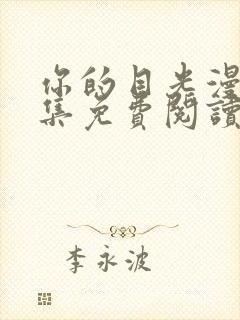 你的目光漫
集免費閱讀
李永波